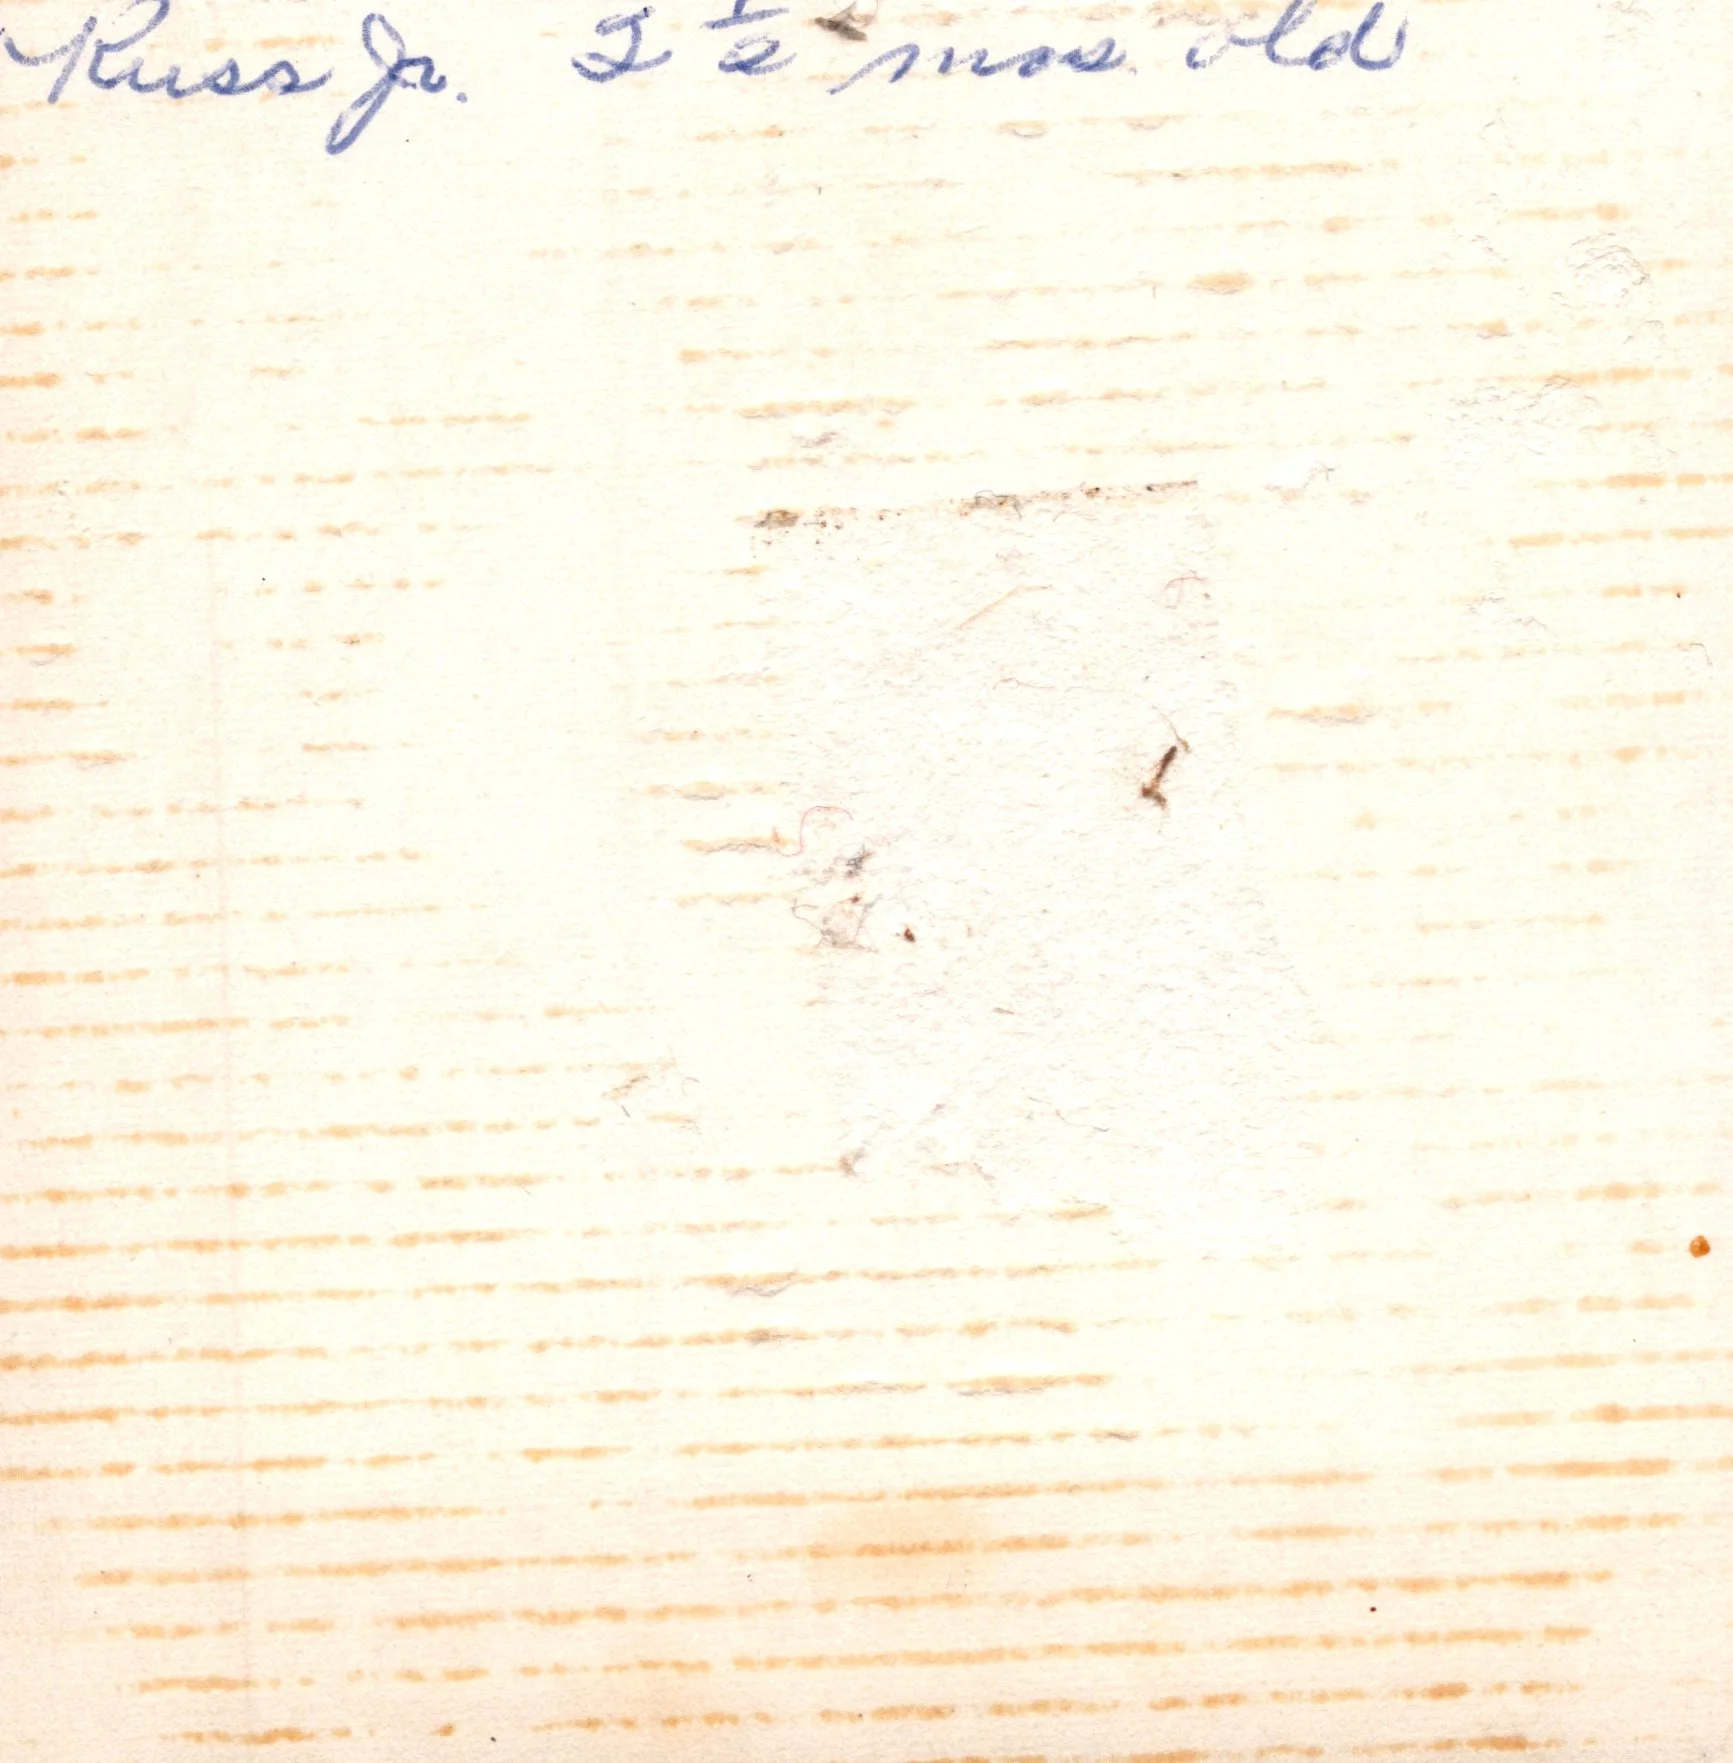 Russ Jr. 2 1/2 mos. old